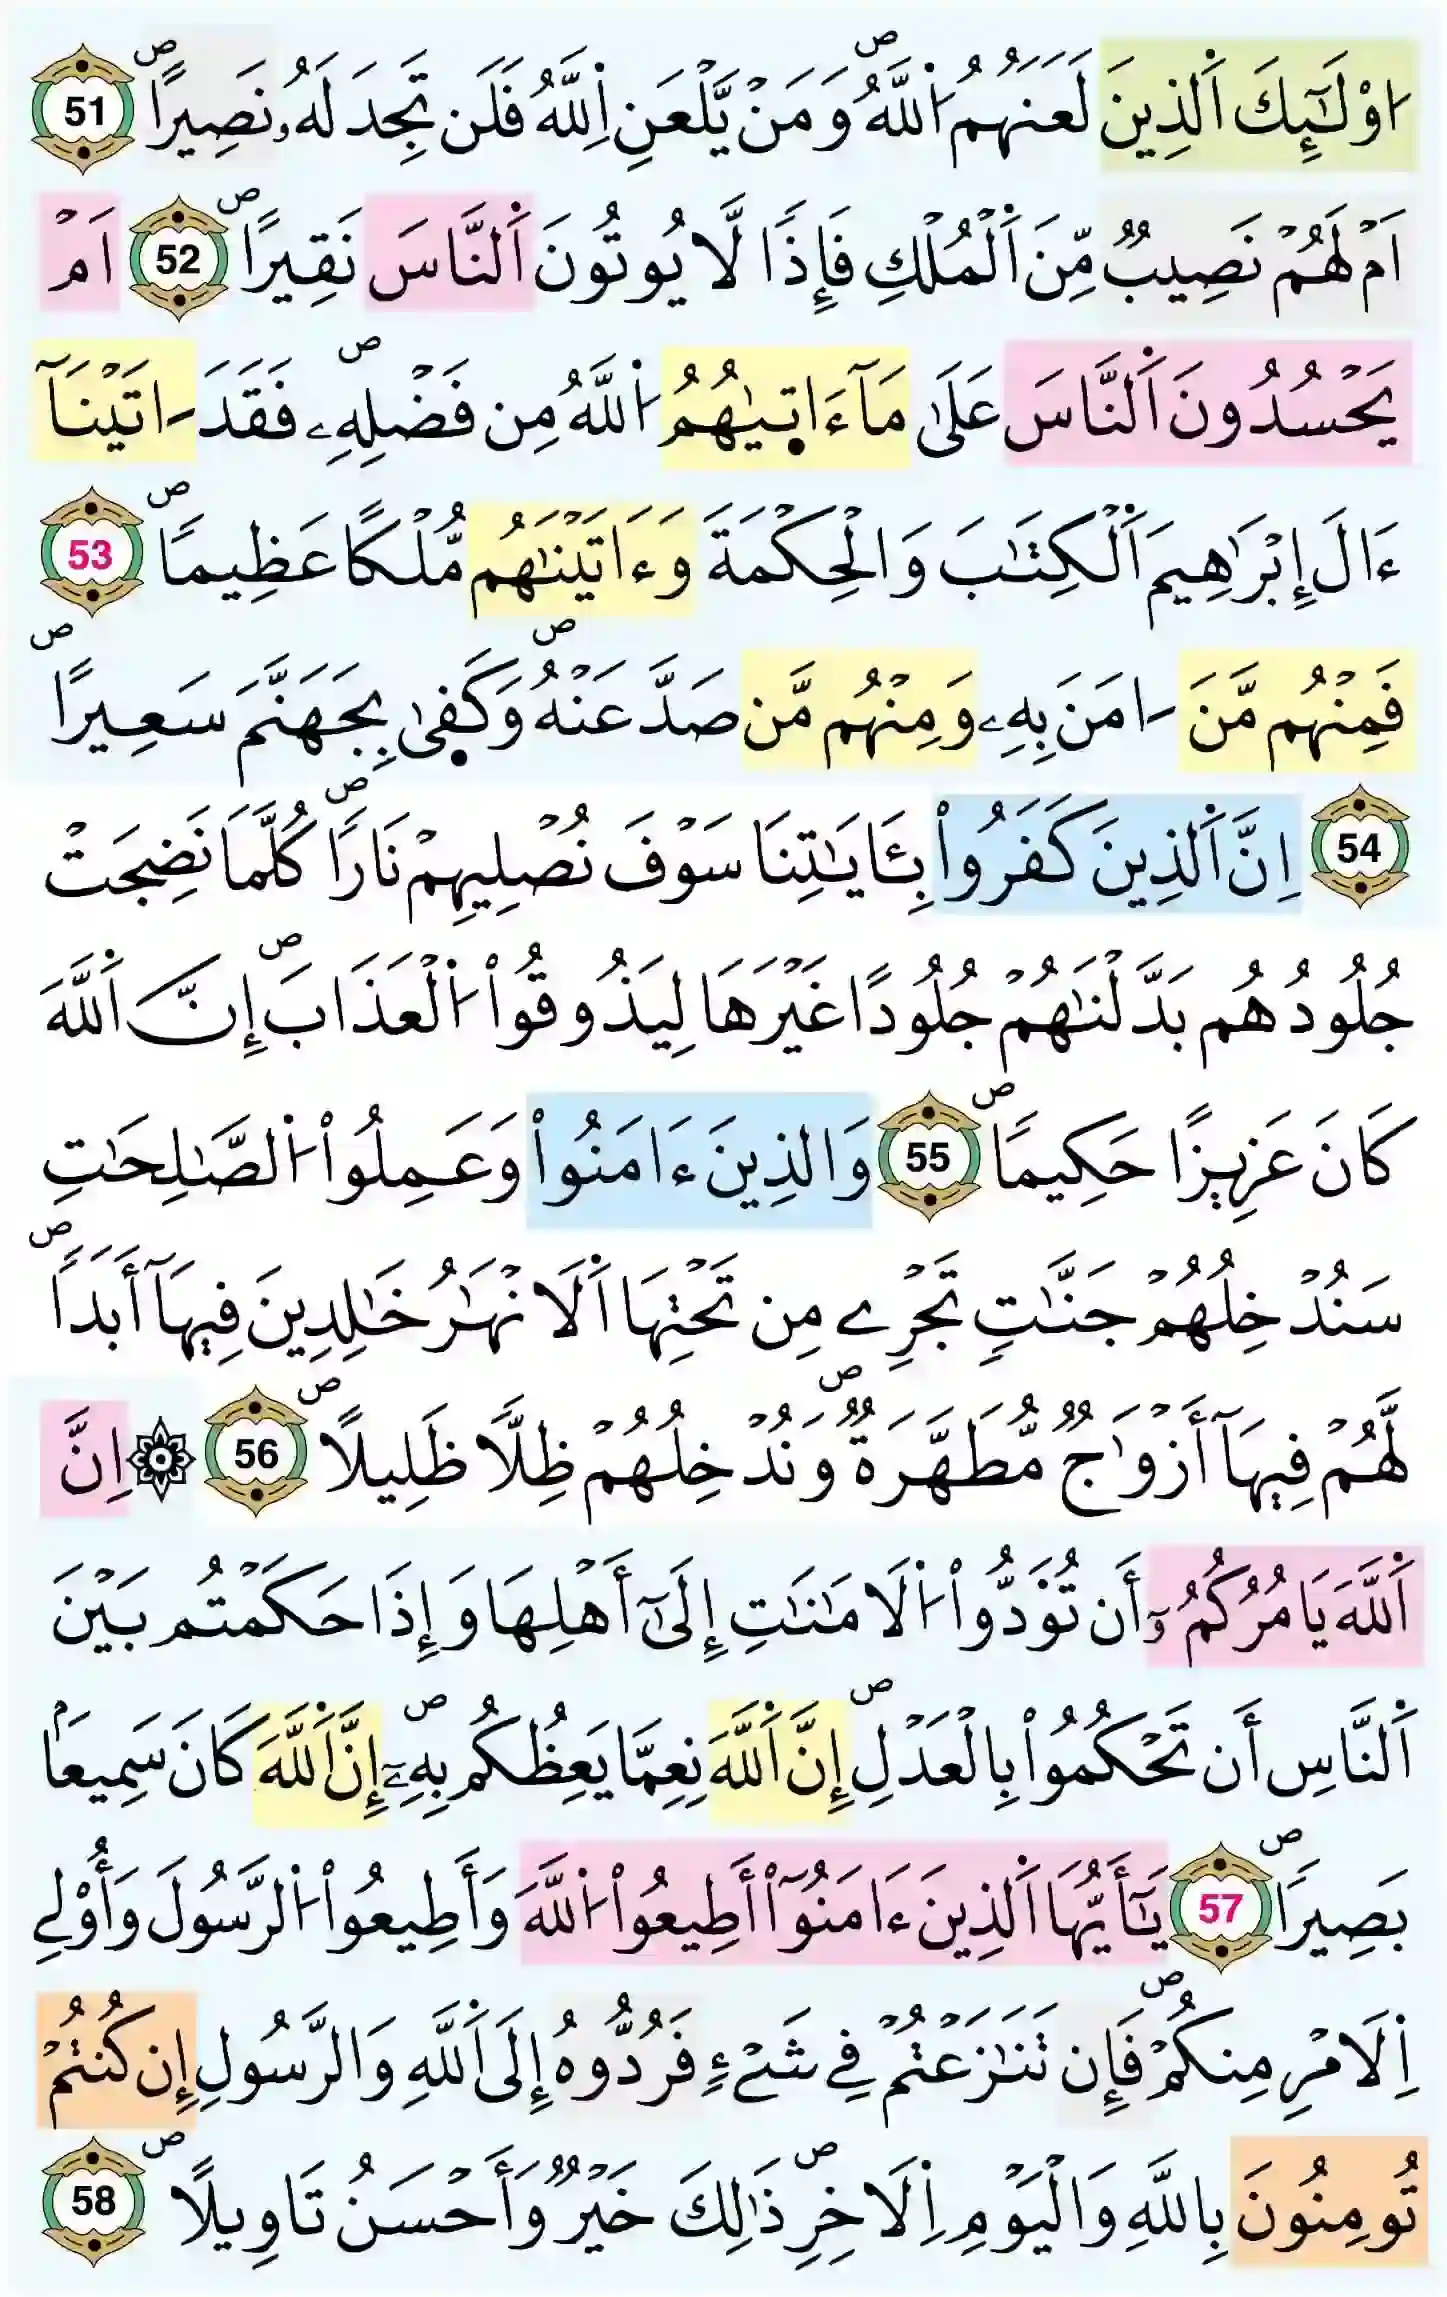 اُوْلَٰٓئِكَ اَ۬لذِينَ لَعَنَهُمُ اُ۬للَّهُۖ وَمَنْ يَّلْعَنِ اِ۬للَّهُ فَلَن تَجِدَ لَهُۥ نَصِيراًۖ 51
اَمْ لَهُمْ نَصِيبٞ مِّنَ اَ۬لْمُلْكِ فَإِذاٗ لَّا يُوتُونَ اَ۬لنَّاسَ نَقِيراًۖ 52 اَمْ
يَحْسُدُونَ اَ۬لنَّاسَ عَلَىٰ مَآ ءَاتٜيٰهُمُ اُ۬للَّهُ مِن فَضْلِهِۦۖ فَقَدَ اٰتَيْنَآ
ءَالَ إِبْرَٰهِيمَ اَ۬لْكِتَٰبَ وَالْحِكْمَةَ وَءَاتَيْنَٰهُم مُّلْكاً عَظِيماٗۖ 53
فَمِنْهُم مَّنَ اٰمَنَ بِهِۦ وَمِنْهُم مَّن صَدَّ عَنْهُۖ وَكَفٜىٰ بِجَهَنَّمَ سَعِيراًۖ
54 اِنَّ اَ۬لذِينَ كَفَرُواْ بِـَٔايَٰتِنَا سَوْفَ نُصْلِيهِمْ نَاراٗۖ كُلَّمَا نَضِجَتْ
جُلُودُهُم بَدَّلْنَٰهُمْ جُلُوداً غَيْرَهَا لِيَذُوقُواْ اُ۬لْعَذَابَۖ إِنَّ اَ۬للَّهَ
كَانَ عَزِيزاً حَكِيماٗۖ 55 وَالذِينَ ءَامَنُواْ وَعَمِلُواْ اُ۬لصَّٰلِحَٰتِ
سَنُدْخِلُهُمْ جَنَّٰتٖ تَجْرِے مِن تَحْتِهَا اَ۬لَانْهَٰرُ خَٰلِدِينَ فِيهَآ أَبَداٗۖ
لَّهُمْ فِيهَآ أَزْوَٰجٞ مُّطَهَّرَةٞۖ وَنُدْخِلُهُمْ ظِلّاٗ ظَلِيلاًۖ 56 ۞ اِنَّ
اَ۬للَّهَ يَامُرُكُمُۥٓ أَن تُؤَدُّواْ اُ۬لَامَٰنَٰتِ إِلَىٰٓ أَهْلِهَا وَإِذَا حَكَمْتُم بَيْنَ
اَ۬لنَّاسِ أَن تَحْكُمُواْ بِالْعَدْلِۖ إِنَّ اَ۬للَّهَ نِعِمَّا يَعِظُكُم بِهِۦٓۖ إِنَّ اَ۬للَّهَ كَانَ سَمِيعاَۢ
بَصِيراٗۖ 57 يَٰٓأَيُّهَا اَ۬لذِينَ ءَامَنُوٓاْ أَطِيعُواْ اُ۬للَّهَ وَأَطِيعُواْ اُ۬لرَّسُولَ وَأُوْلِے
اِ۬لَامْرِ مِنكُمْۖ فَإِن تَنَٰزَعْتُمْ فِے شَےْءٖ فَرُدُّوهُ إِلَى اَ۬للَّهِ وَالرَّسُولِ إِن كُنتُمْ
تُومِنُونَ بِاللَّهِ وَالْيَوْمِ اِ۬لَاخِرِۖ ذَٰلِكَ خَيْرٞ وَأَحْسَنُ تَاوِيلاًۖ 58